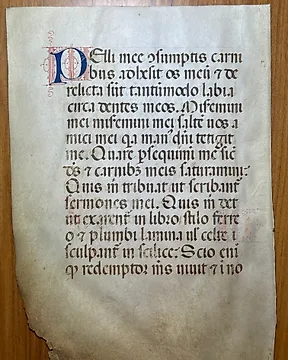 Pelli mee ꝯsumptis carni
bus adhesit os meū ⁊ de
relicta sūt tantūmodo labia
circa dentes meos. Misemini
mei misemini mei saltē uos a
mici mei qa man⁹ dn̄i tetigit
me. Quare ꝑsequimi me sic
ds̄ ⁊ carnibꝫ meis saturamini:
Quis m̄ tribuat ut scribant̄
sermones mei. Quis m̄ det
ut exarent̄ in libro stilo ferre
o ⁊ plumbi lamina ul̄ celte
sculpant̄ in scilice: Scio eni
ꝙ redemptor ms̄ uiuit ⁊ i no